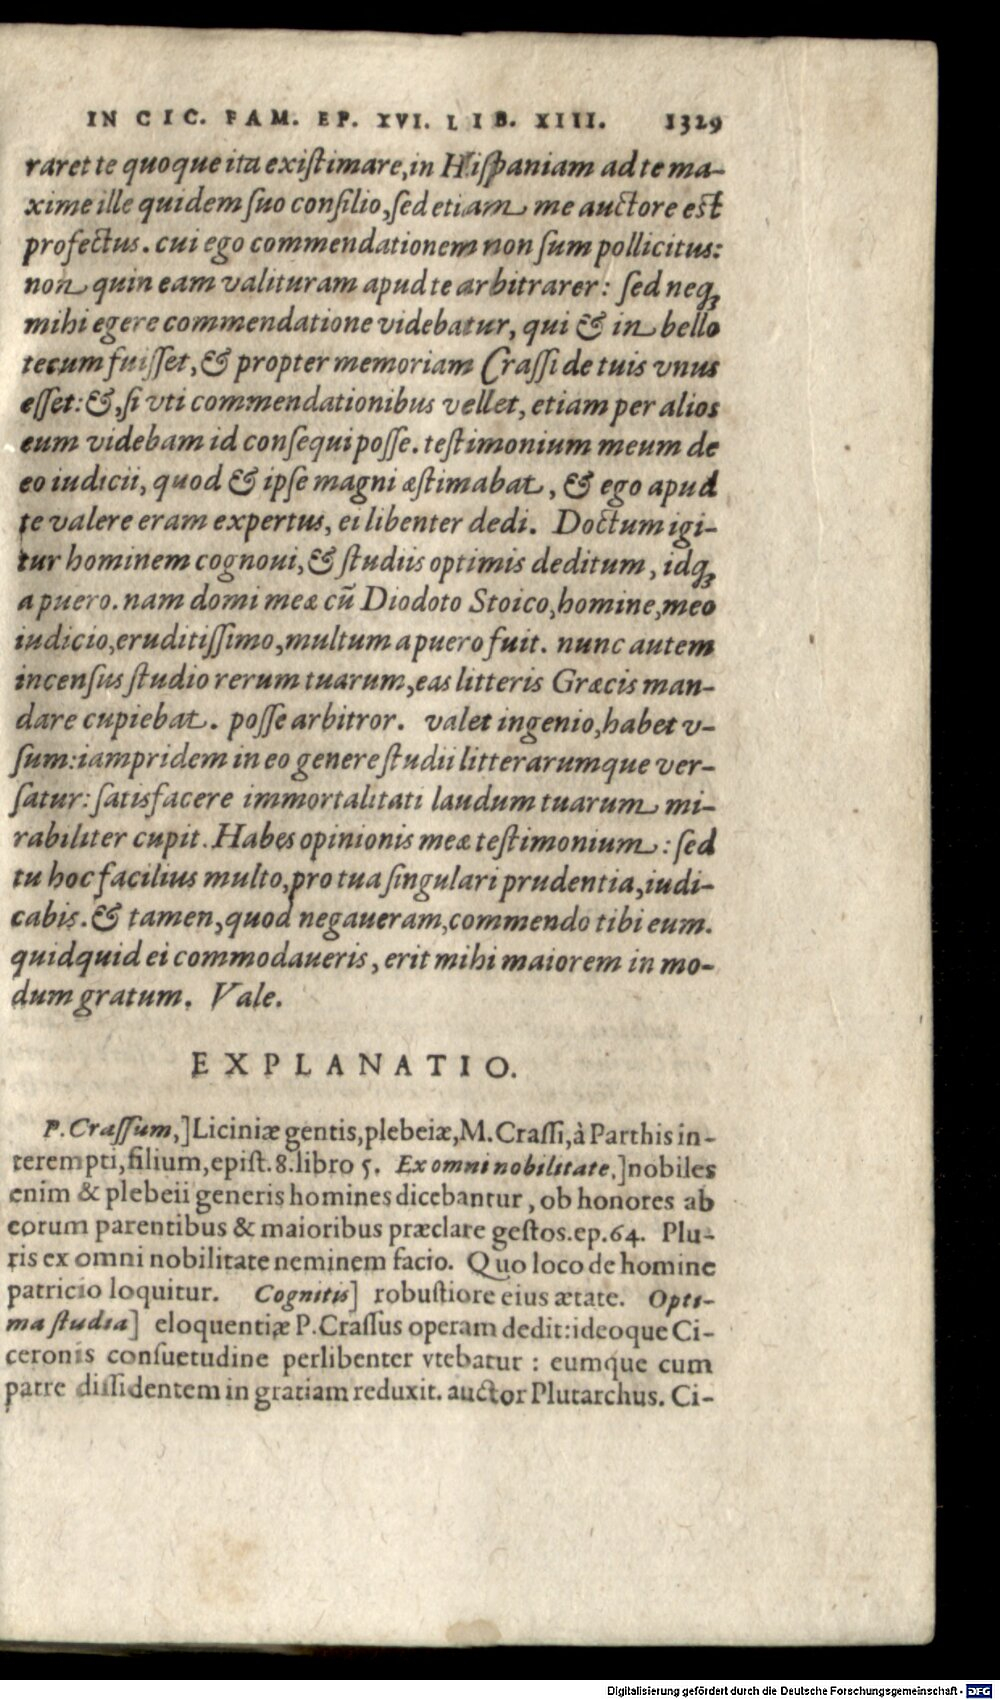 IN CIC. FAM. EP. XVI. LIB. XIII. 1329
raret te quoque ita exiſtimare, in Hiſpaniam ad te ma-
xime ille quidem ſuo conſilio, ſed etiam me auctore est
profectus. cui ego commendationem non ſum pollicitus:
non quin eam valituram apud te arbitrarer: ſed neqꝫ
mihi egere commendatione videbatur, qui & in bello
tecum fuiſſet, & propter memoriam Craſſi de tuis vnus
eſſet: &, ſi vti commendationibus vellet, etiam per alios
eum videbam id conſequi poſſe. teſtimonium meum de
eo iudicii, quod & ipſe magni æſtimabat, & ego apud
te valere eram expertus, ei libenter dedi. Doctum igi-
tur hominem cognoui, & ſtudiis optimis deditum, idqꝫ
a puero. nam domi meæ cũ Diodoto Stoico, homine, meo
iudicio, eruditiſſimo, multum a puero fuit. nunc autem
incenſus ſtudio rerum tuarum, eas litteris Græcis man-
dare cupiebat. poſſe arbitror. valet ingenio, habet v-
ſum: iampridem in eo genere ſtudii litterarumque ver-
ſatur: ſatisfacere immortalitati laudum tuarum mi-
rabiliter cupit. Habes opinionis meæ teſtimonium: ſed
tu hoc facilius multo, pro tua ſingulari prudentia, iudi-
cabis. & tamen, quod negaueram, commendo tibi eum.
quidquid ei commodaueris, erit mihi maiorem in mo-
dum gratum. Vale.
EXPLANATIO.
P. Craſſum,] Liciniæ gentis, plebeiæ, M. Craſſi, à Parthis in-
terempti, filium, epiſt. 8. libro 5. Ex omni nobilitate.] nobiles
enim & plebeii generis homines dicebantur, ob honores ab
eorum parentibus & maioribus præclare geſtos. ep. 64. Plu-
ris ex omni nobilitate neminem facio. Quo loco de homine
patricio loquitur. Cognitis] robuſtiore eius ætate. Opti-
ma ſtudia] eloquentiæ P. Craſſus operam dedit: ideoque Ci-
ceronis conſuetudine perlibenter vtebatur: eumque cum
patre diſſidentem in gratiam reduxit. auctor Plutarchus. Ci-
Digitalisierung gefördert durch die Deutsche Forschungsgemeinschaft - DFG